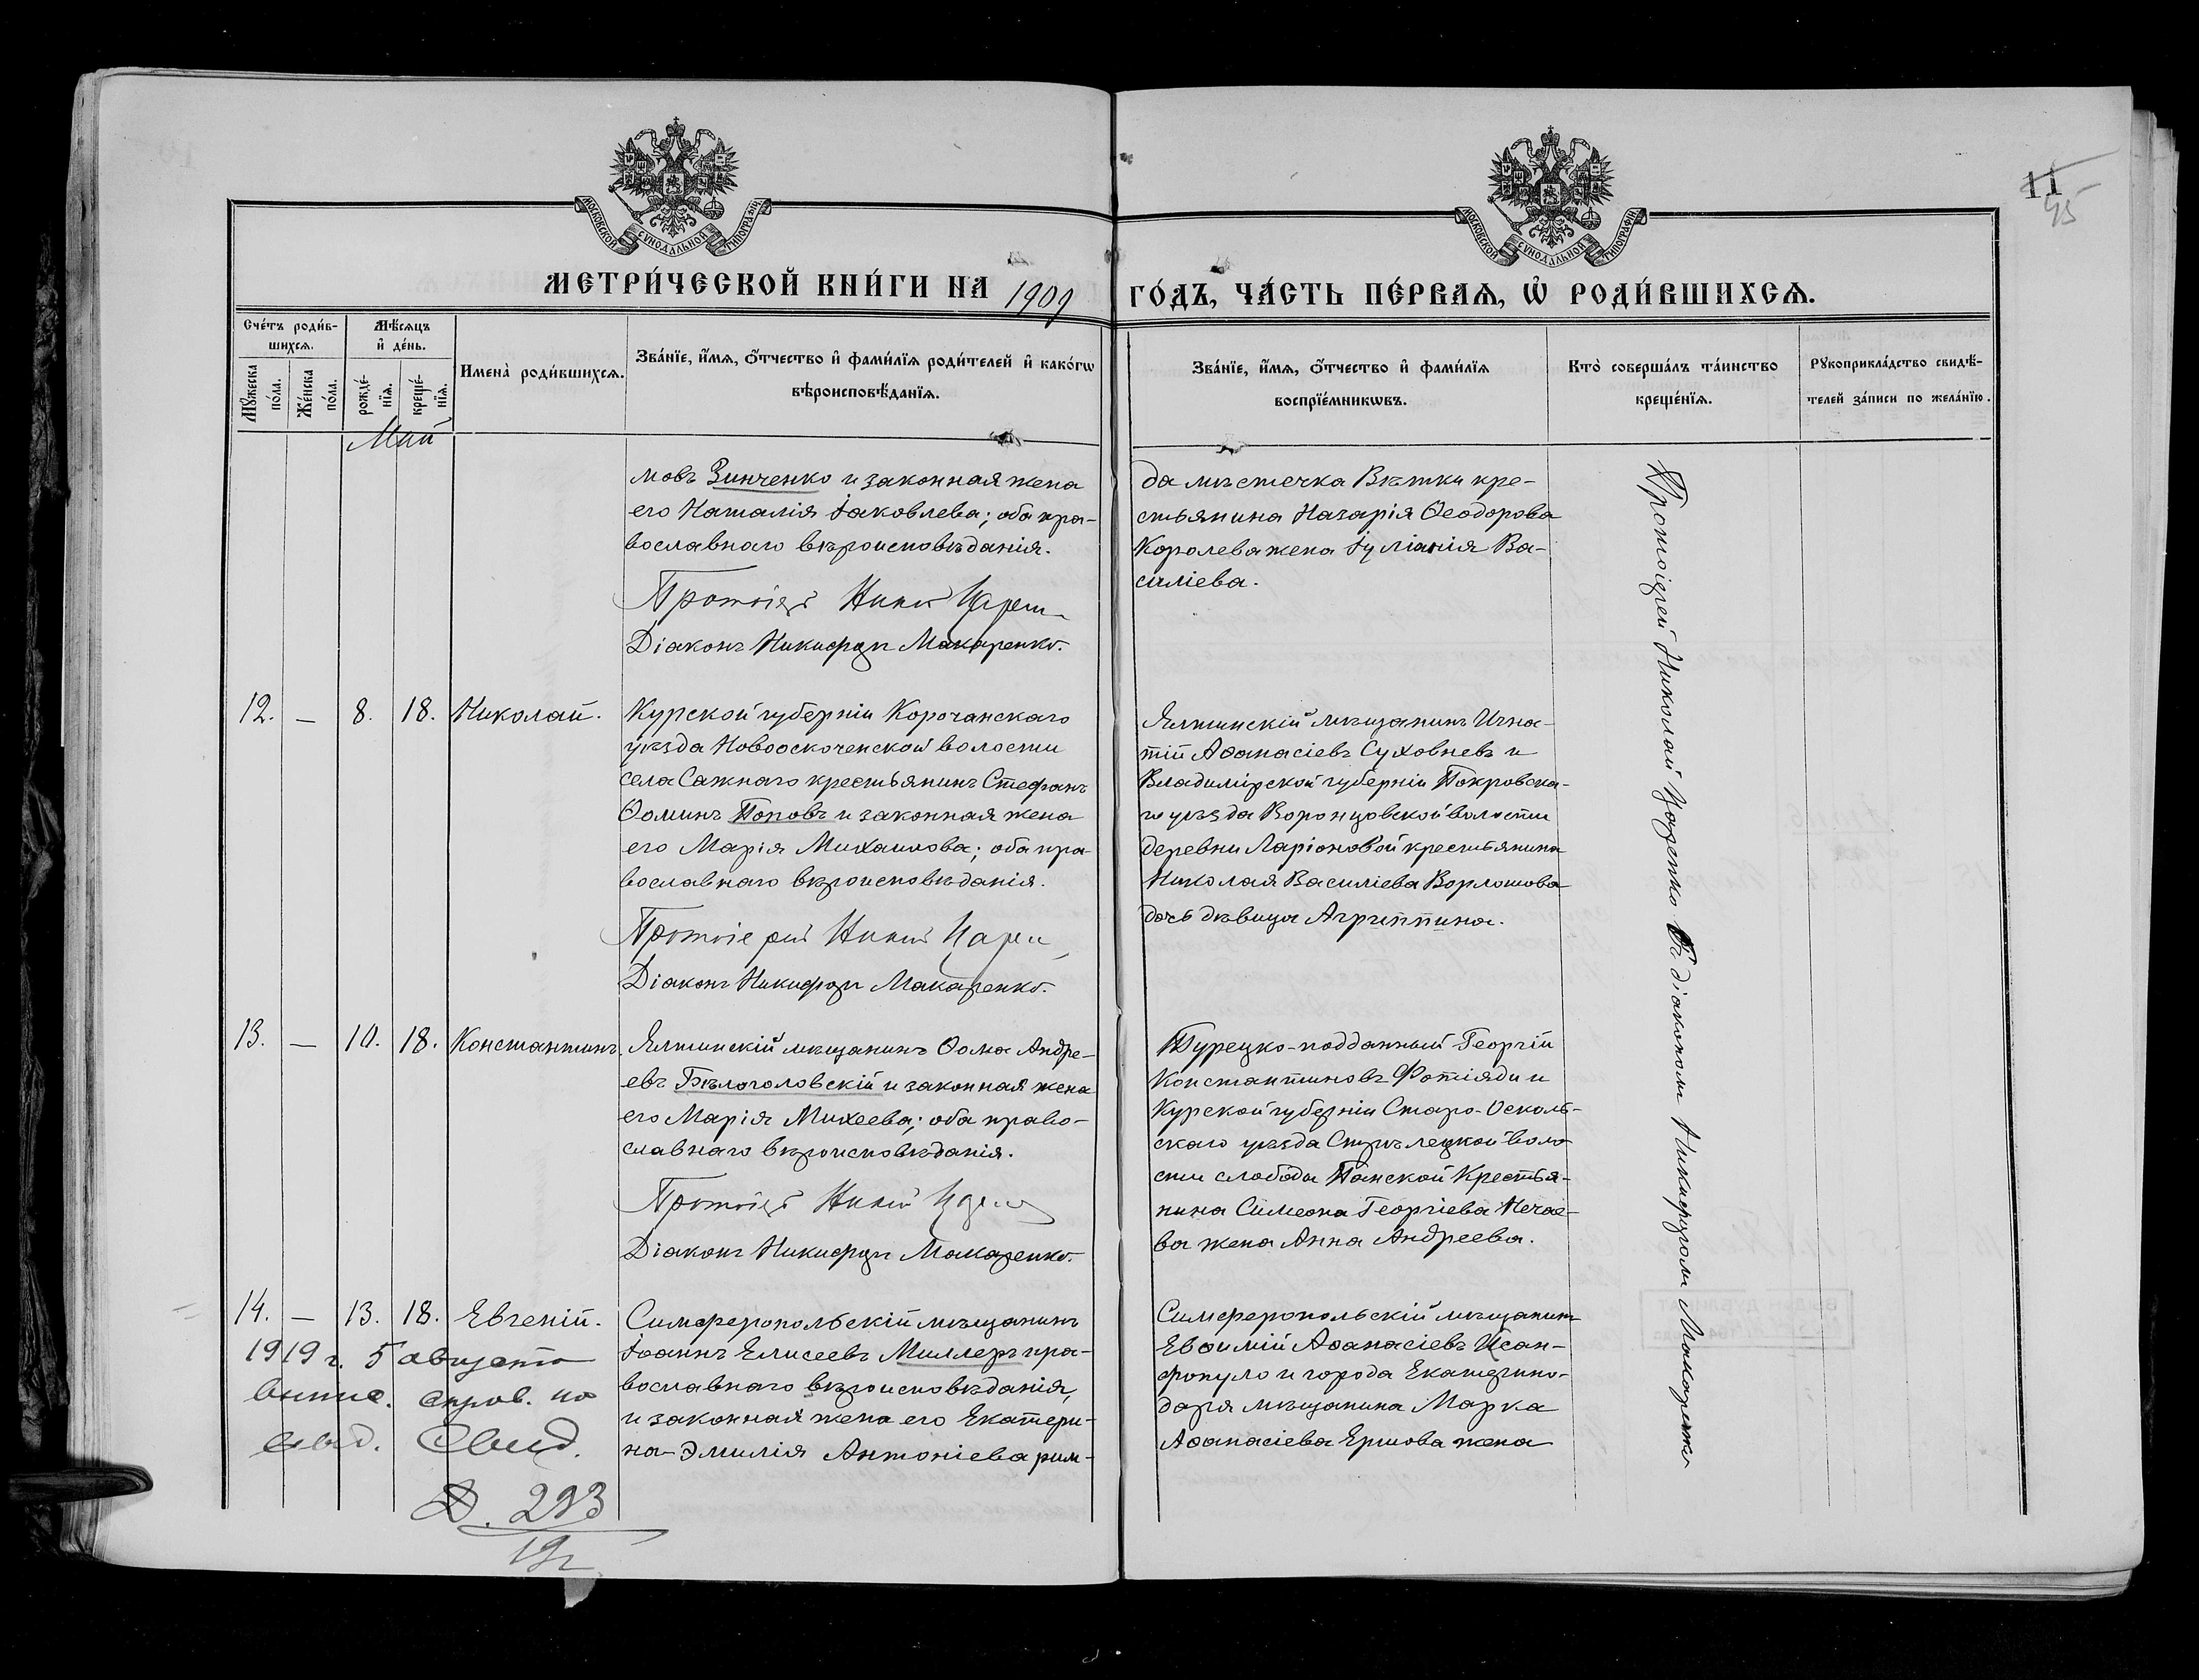 11
45
МОСКОВСКОЙ СѴНОДАЛЬНОЙ ТИПОГРАФІИ
МОСКОВСКОЙ СѴНОДАЛЬНОЙ ТИПОГРАФІИ
МЕТРИ́ЧЕСКОЙ КНИ́ГИ НА 1909 ГО́ДЪ, ЧА́СТЬ ПЕ́РВАѦ, Ѡ РОДИ́ВШИХСѦ.
Сче́тъ роди́в-
шихсѧ.
Мꙋ́жеска по́ла.
Же́нска по́ла.
Мѣ́сѧцъ
и҆ де́нь.
рожде́-
нїѧ.
креще́-
нїѧ.
Имена̀ роди́вшихсѧ.
Зва́нїе, и҆́мѧ, ѻ҆́тчество и҆ фами́лїѧ роди́телей и҆ како́гѡ
вѣроисповѣ́данїѧ.
Зва́нїе, и҆́мѧ, ѻ҆́тчество и҆ фами́лїѧ
воспрїе́мникѡвъ.
Кто̀ соверша́лъ та́инство
креще́нїѧ.
Рꙋкоприкла́дство свидѣ́-
телей за́писи по жела́нїю.
Май
мовъ Зинченко и законная жена
его Наталія Іаковлева; оба пра-
вославнаго вѣроисповѣданія.
Діаконъ Никифоръ Макаренко.
да мѣстечка Вѣтки кре-
стьянина Назарія Ѳеодорова
Королева жена Іуліанія Ва-
силіева.
Протоіерей Николай Цагенко съ діакономъ Никифоромъ Макаренко
12. — 8. 18. Николай.
Курской губерніи Корочанскаго
уѣзда Новооскоченской волости
села Сажнаго крестьянинъ Стефанъ
Ѳоминъ Поповъ и законная жена
его Марія Михаилова; оба пра-
вославнаго вѣроисповѣданія.
Діаконъ Никифоръ Макаренко.
Ялтинскій мѣщанинъ Игна-
тій Аѳанасіевъ Суховневъ и
Владимірской губерніи Покровска-
го уѣзда Воронцовской волости
деревни Ларіоновой крестьянина
Николая Василіева Ворлошова
дочь дѣвица Агриппина.
13. — 10. 18. Константинъ.
Ялтинскій мѣщанинъ Ѳома Андре-
евъ Бѣлоголовскій и законная жена
его Марія Михеева; оба право-
славнаго вѣроисповѣданія.
Діаконъ Никифоръ Макаренко.
Турецко-подданный Георгій
Константиновъ Фотіяди и
Курской губерніи Старо-Осколь-
скаго уѣзда Стрѣлецкой воло
сти слободы Панской крестья-
нина Симеона Георгіева Нечае-
ва жена Анна Андреева.
14. — 13. 18. Евгеній.
1919 г. 5 августа
выпис. справ. по
Свид.
293
19 г.
Симферопольскій мѣщанинъ
Іоаннъ Елисеевъ Миллеръ пра-
вославнаго вѣроисповѣданія,
и законная жена его Екатери-
на-Эмилія Антоніева рим-
Симферопольскій мѣщанинъ
Евѳимій Аѳанасіевъ Ксан-
фопуло и города Екатерино-
даря мѣщанина Марка
Аѳанасіева Ершова жена